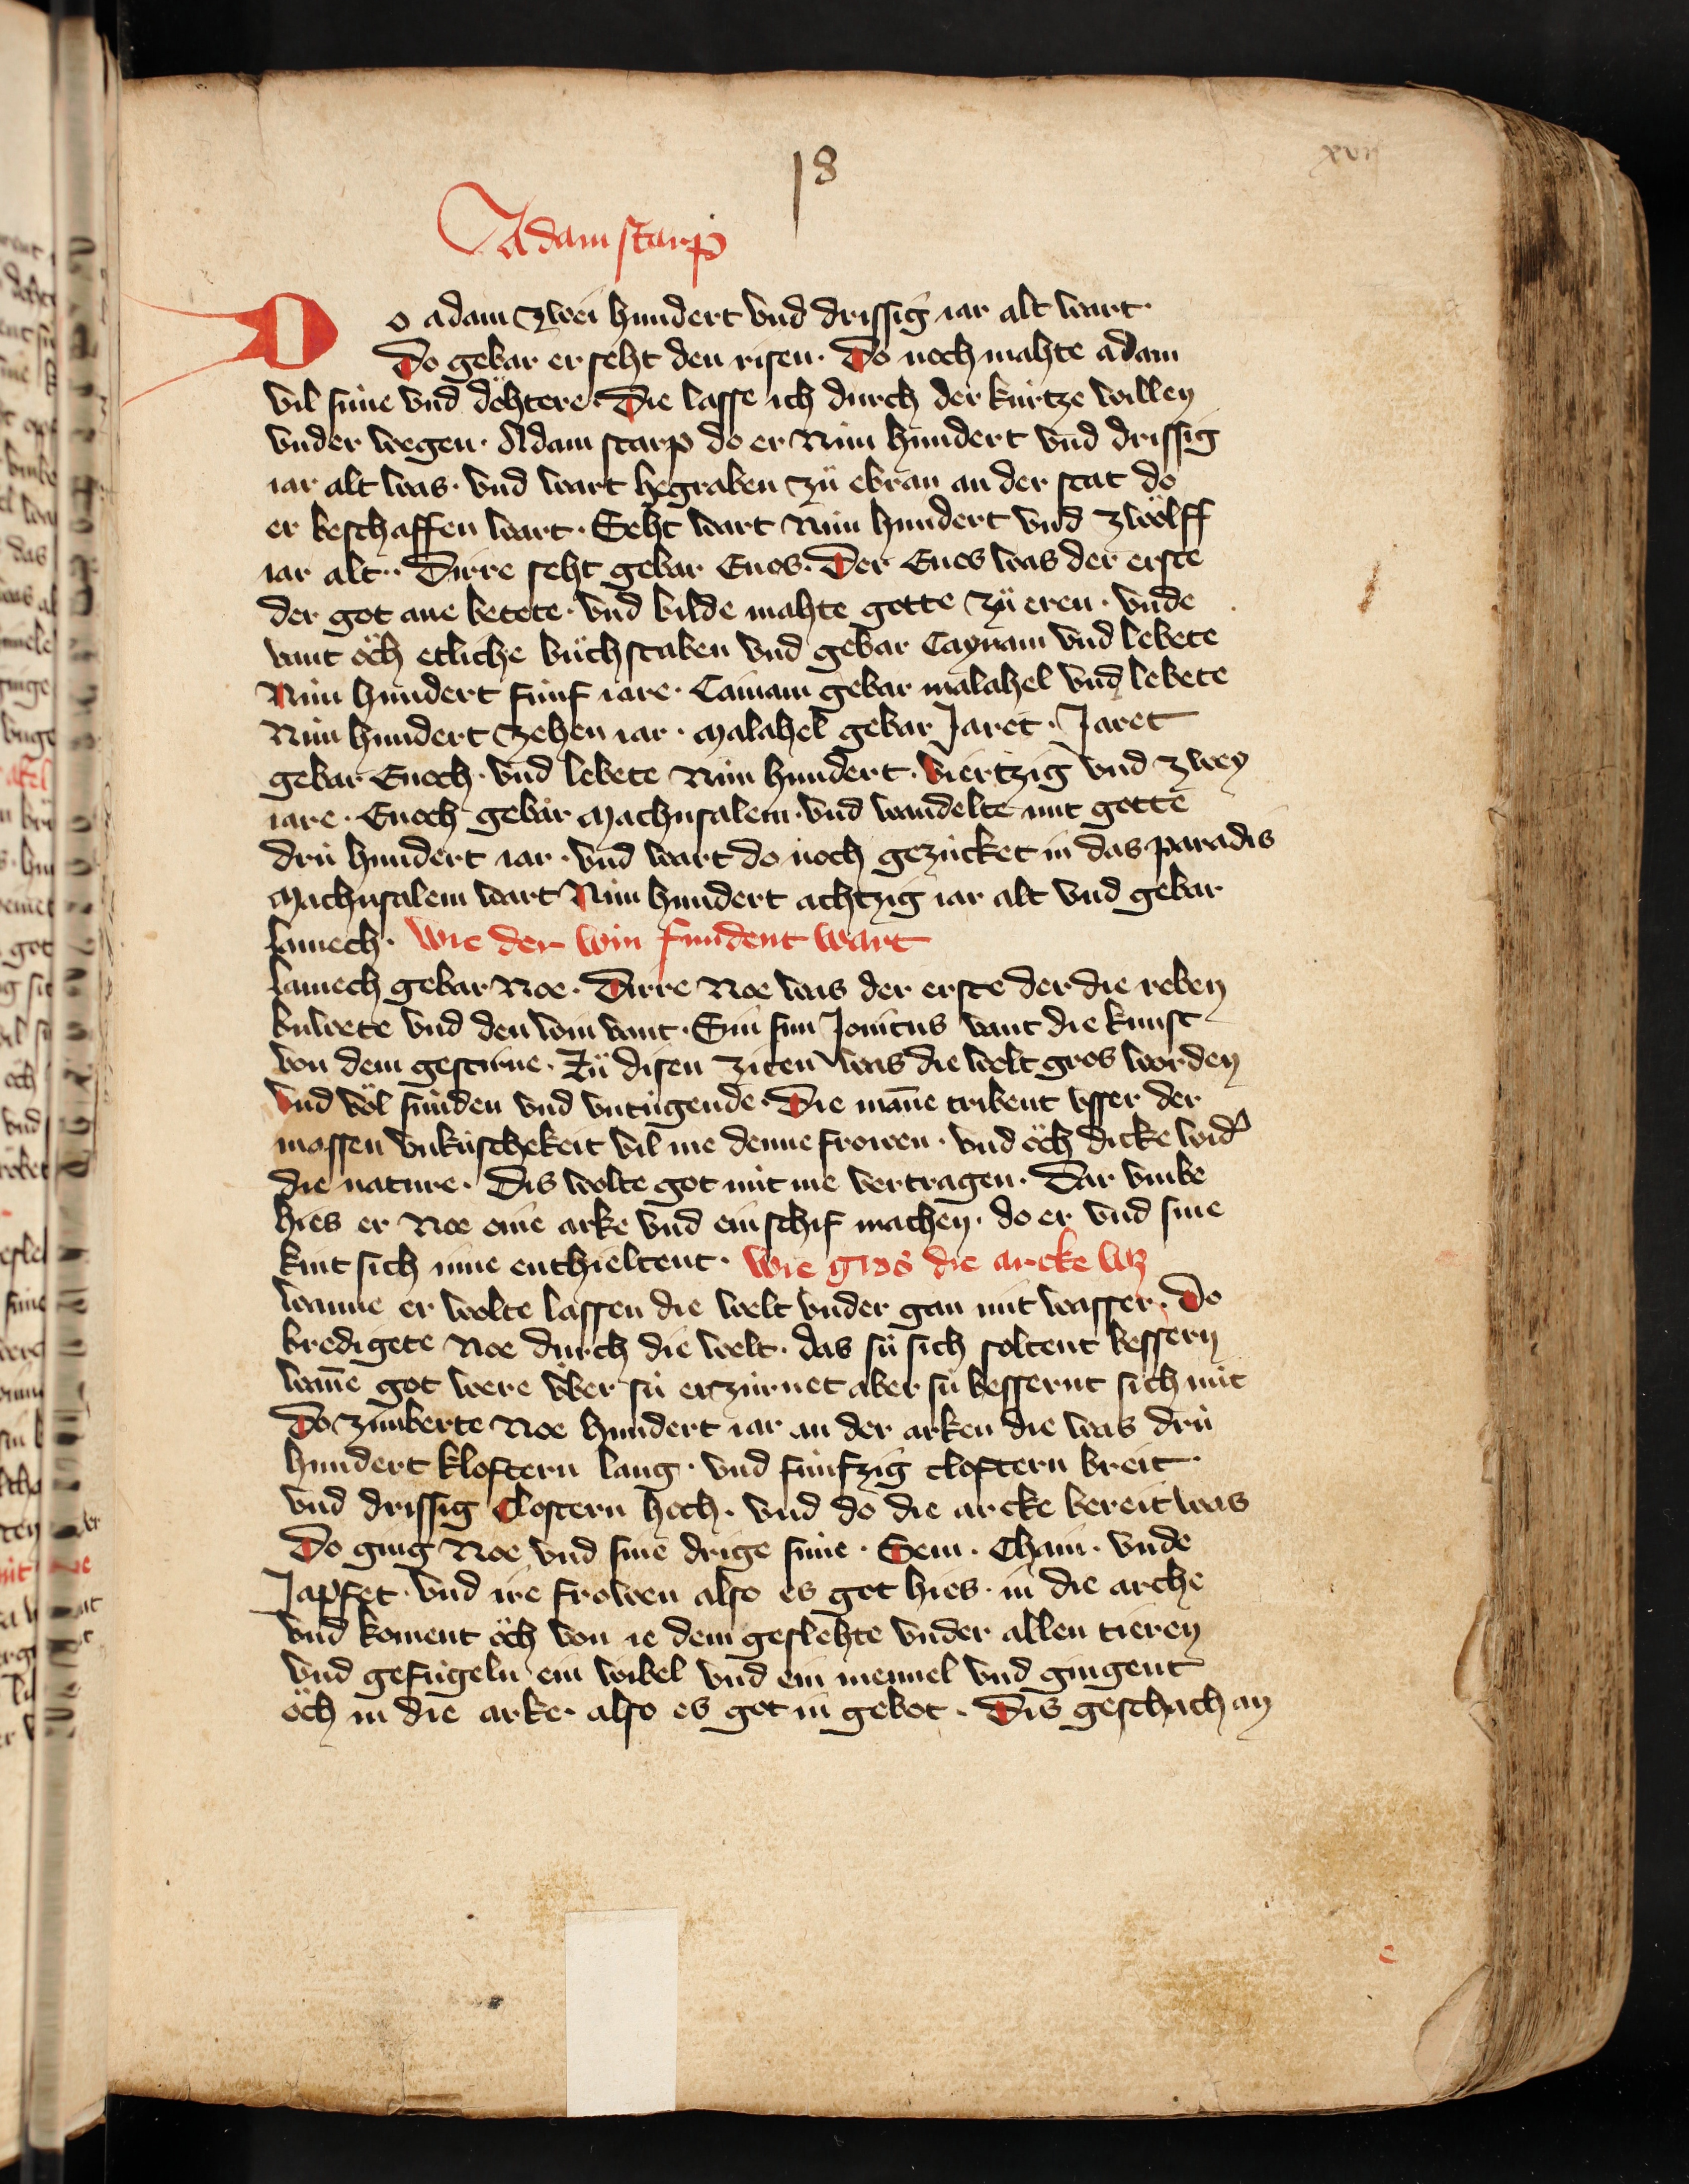 18
xvij
Adam starp
Do adam zwei hundert vnd drissig iar alt wart·
Do gebar er seht den risen· Do noch mahte adam
vil süne vnd döhtere· Die lasse ich durch der kúrtze willen
vnder wegen· Adam starp do er Nún hundert vnd drissig
iar alt was· vnd wart begraben zů ebran an der stat do
er beschaffen wart· Seht wart Nún hundert vnd zwölff
iar alt· Dirre seht gebar Enos· Der Enos was der erste
der got ane betete· vnd bilde mahte gotte zů eren· vnde
vant öch etliche bůchstaben vnd gebar Caynam vnd lebete
Nún hundert fúnf iare· Cainam gebar malahel vnd lebete
Nún hundert zehen iar· malahel gebar Jaret· Jaret
gebar Enoch· vnd lebete Nún hundert· viertzig vnd zwey
iare· Enoch gebar Machusalem· vnd wandelte mit gotte
drú hundert iar· vnd wart do noch gezücket in das paradis
Machusalem wart Nún hundert achtzig iar alt vnd gebar
lamech· Wie der win fundent wart
lamech gebar Noe· Dirre Noe was der erste der die reben
buwete vnd den win vant· Sin sun Jonitus vant die kunst
von dem gestirne· Zů disen ziten was die welt gros worden
vnd völ súnden vnd vntúgende· Die mañe tribent vsser der
mossen vnkúschekeit vil me denne frowen· vnd öch dicke wid'
die nature· Dis wolte got nút me vertragen· Dar vmbe
hies er Noe eine arke vnd ein schif machen· do er vnd sine
kint sich inne enthieltent· Wie gros die arcke wz
wanne er wolte lassen die welt vnder gan mit wasser· Do
bredigete Noe durch die welt· das sú sich soltent bessern
wañe got were über sú erzúrnet aber sú bessernt sich nút
Do zimberte Noe hundert iar an der arken die was drú
hundert kloftern lang· vnd fúnfzig cloftern breit·
vnd drissig Clostern hoch· vnd do die arcke bereit was
Do ging Noe vnd sine drige süne· Sem· Cham· vnde
Japfet· vnd ire frowen also es got hies· in die arche
vnd koment öch von ie dem geslehte vnder allen tieren
vnd gefúgeln ein wibel vnd ein mennel vnd gingent
öch in die arke· also es got in gebot· Dis geschach an
c